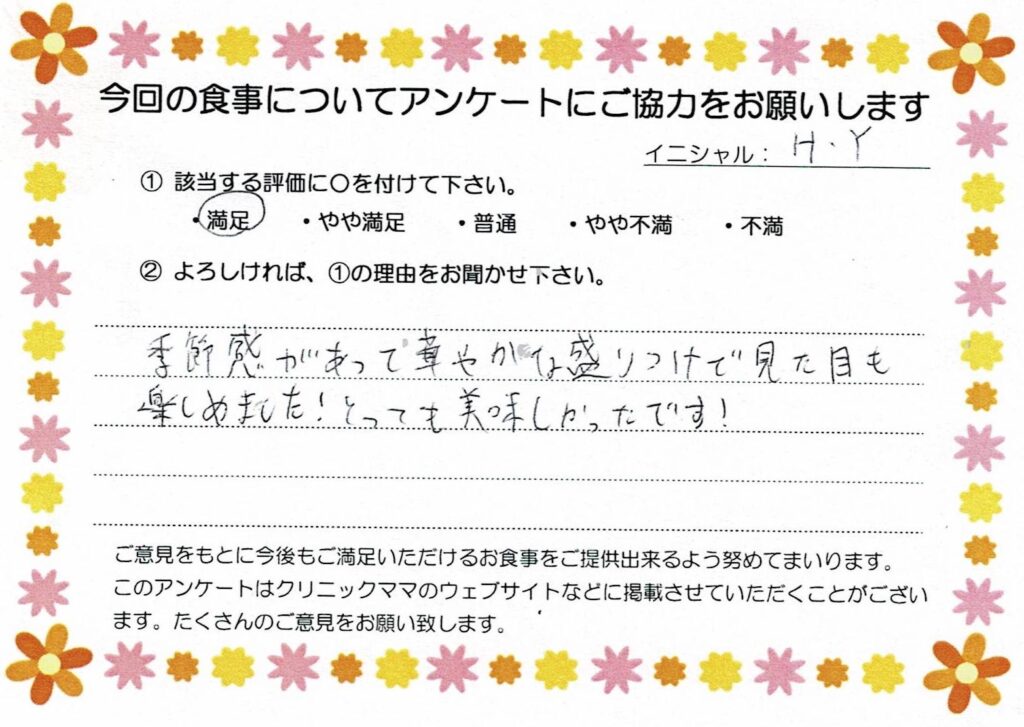 今回の食事についてアンケートにご協力をお願いします
イニシャル： H・Y
① 該当する評価に〇を付けて下さい。
・満足 ・やや満足 ・普通 ・やや不満 ・不満
② よろしければ、①の理由をお聞かせ下さい。
季節感があって華やかな盛りつけで見た目も
楽しめました！とっても美味しかったです！
ご意見をもとに今後もご満足いただけるお食事をご提供出来るよう努めてまいります。
このアンケートはクリニックママのウェブサイトなどに掲載させていただくことがござい
ます。たくさんのご意見をお願い致します。